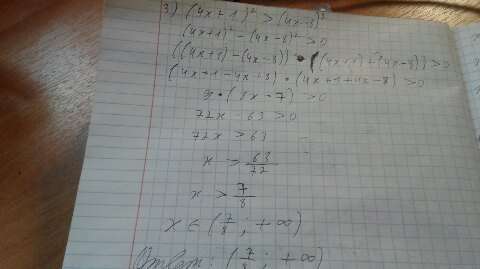 3) (4x+1)² > (4x-8)²
(4x+1)² - (4x-8)² > 0
((4x+1) - (4x-8)) · ((4x+1) + (4x-8)) > 0
(4x+1-4x+8) · (4x+1+4x-8) > 0
9 · (8x-7) > 0
72x - 63 > 0
72x > 63
x > 63/72
x > 7/8
x ∈ (7/8; +∞)
Ответ: (7/8; +∞)